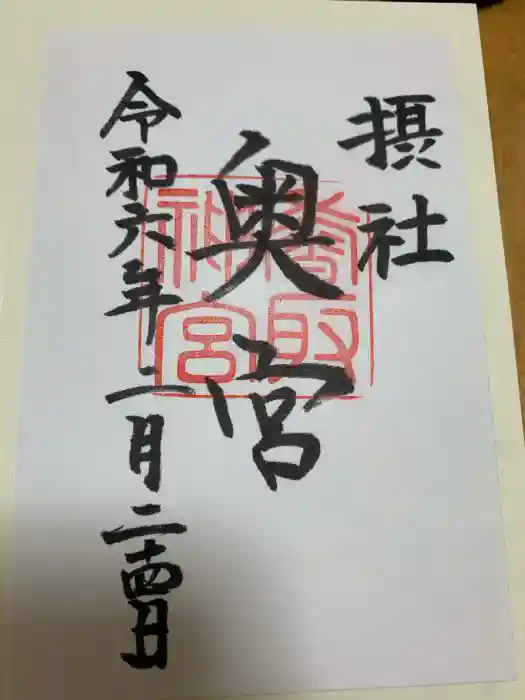 摂社
奥宮
香取神宮
令和六年二月二十四日